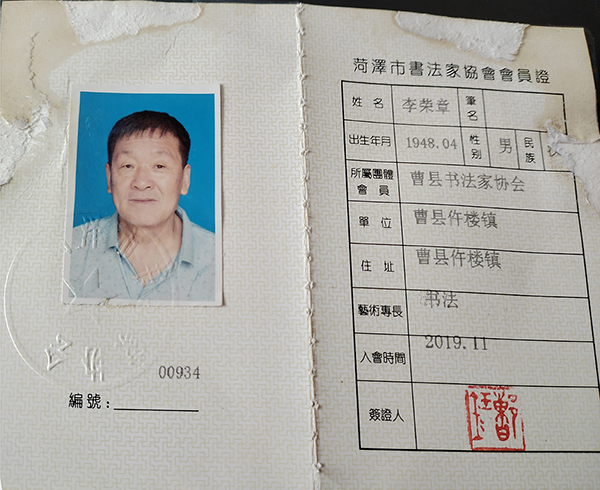 00934
編號：
菏澤市書法家協會會員證
姓名 李荣章 筆名
出生年月 1948.04 性别 男 民族
所屬團體會員 曹县书法家协会
單位 曹县仵楼镇
住址 曹县仵楼镇
藝術專長 书法
入會時間 2019.11
簽證人